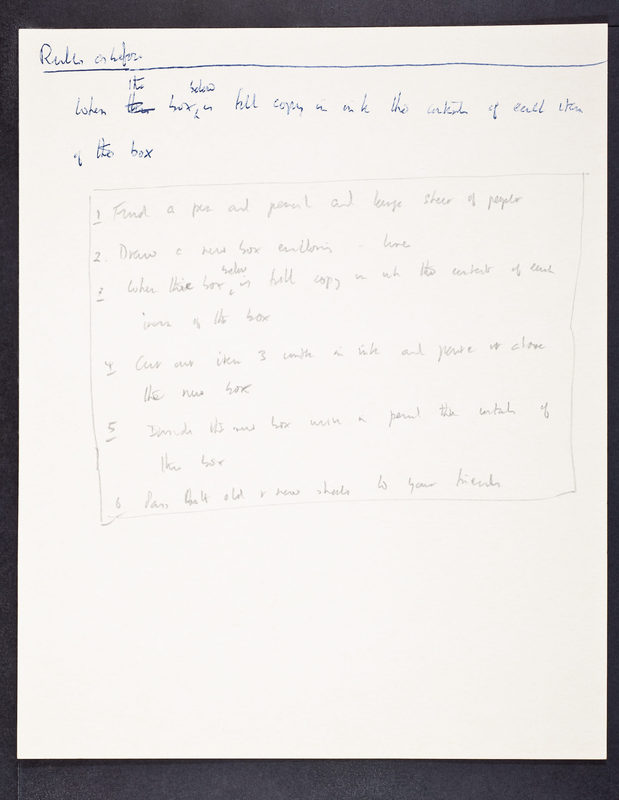 Rules as before
the below
When this box, is full copy in ink the contents of each item
of the box
1 Find a pen and pencil and large sheet of paper
2. Draw a new box outline - line
below
3 When the box, is full copy in ink the contents of each
item of the box
4 Cut out item 3 in ink and paste it above
the new box
5 Inside the new box write in pencil the contents of
the box
6 Pass both old & new sheets to your friends